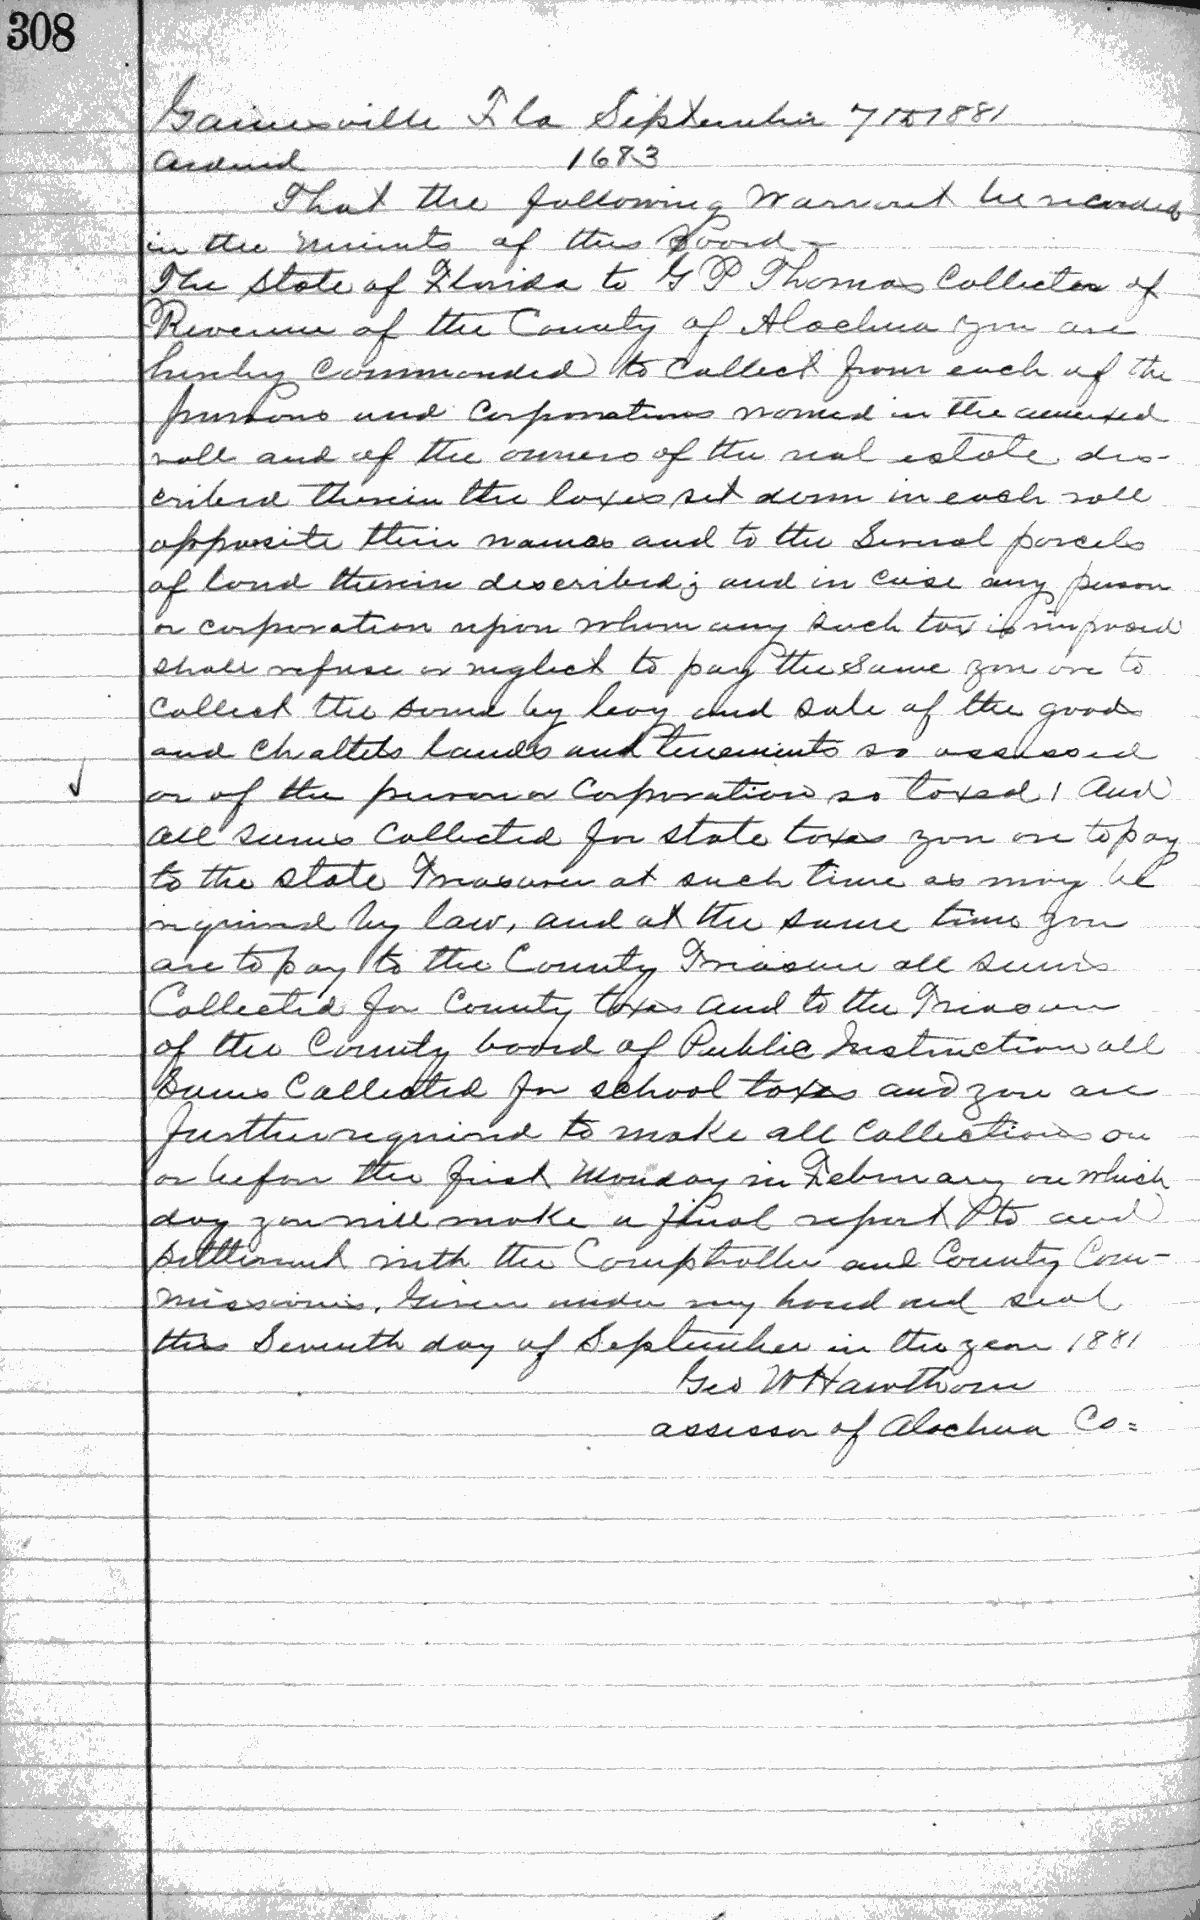 308
Gainesville Fla September 7th 1881
Ordered 1683
That the following Warrant be recorded
in the minuts of this Board -
The State of Florida to G P Thomas Collector of
Revenue of the County of Alachua you are
hereby Commanded to Collect from each of the
persons and Corporations named in the annexed
roll and of the owners of the real estate des-
cribed therein the taxes set down in each roll
opposite their names and to the Several parcels
of land therein described; and in case any person
or corporation upon whom any such tax is imposed
shall refuse or neglect to pay the Same you are to
Collect the same by levy and sale of the goods
and Chattels lands and tenements so assessed
or of the person or Corporation so taxed ; And
all sums Collected for state taxes you are to pay
to the State Treasurer at such time as may be
required by law, and at the same time you
are to pay to the County Treasurer all sums
Collected for County taxes and to the Treasurer
of the County board of Public Instruction all
Sums Collected for school taxes and you are
further required to make all collections on
or before the first Monday in February on which
day you will make a final report to and
settlement with the Comptroller and County Com-
missioners. Given under my hand and seal
this Seventh day of September in the year 1881
Geo W Hawthorn
assessor of Alachua Co =